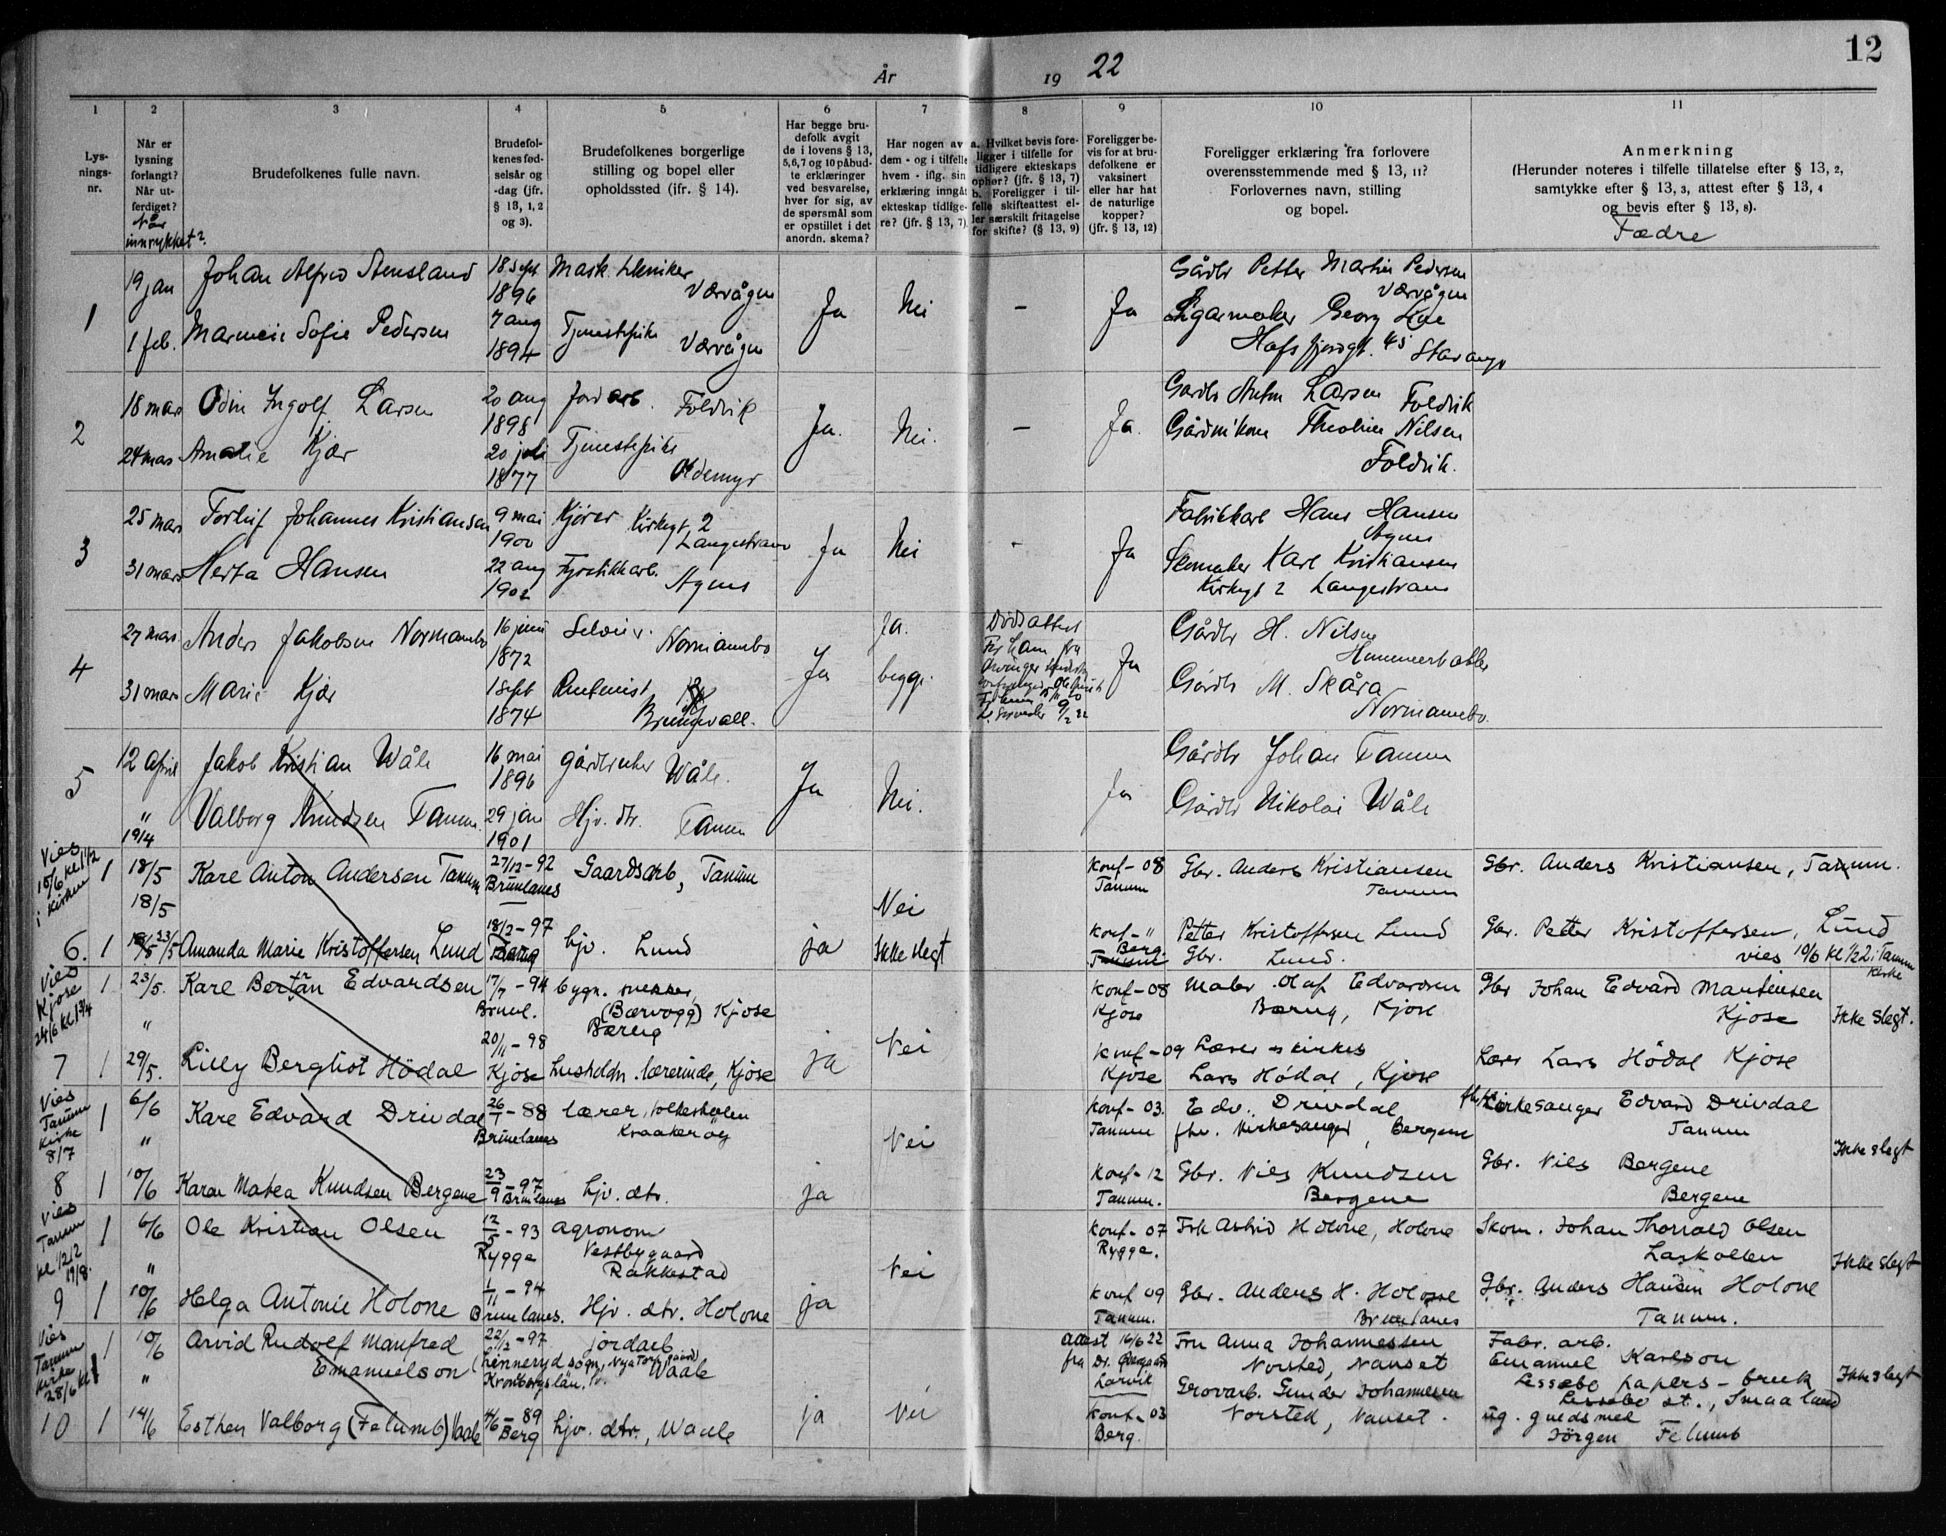 12
År 19 22
1 2 3 4 5 6 7 8 9 10 11
Lys-
nings-
nr.
Når er
lysning
forlangt?
Når ut-
ferdiget?
Når
innrykket?
Brudefolkenes fulle navn.
Brudefol-
kenes fød-
selsår og
-dag (jfr.
§ 13, 1, 2
og 3).
Brudefolkenes borgerlige
stilling og bopel eller
opholdssted (ifr. § 14).
Har begge bru-
defolk avgit
de i lovens § 13,
5,6,7 og 10 påbud-
te erklæringer
ved besvarelse,
hver for sig, av
de spørsmål som
er opstillet i det
anordn. skema?
Har nogen av
dem - og i tilfelle
hvem - iflg. sin
erklæring inngåt
ekteskap tidlige-
re? (jfr. § 13, 7).
a. Hvilket bevis fore-
ligger i tilfelle for
tidligere ekteskaps
ophør? (jfr. § 13, 7)
b. Foreligger i til-
felle skifteattest el-
ler særskilt fritagelse
for skifte? (§ 13, 9)
Foreligger be-
vis for at bru-
defolkene er
vaksinert
eller har hat
de naturlige
kopper?
(jfr. § 13, 12)
Foreligger erklæring fra forlovere
overensstemmende med § 13, 11?
Forlovernes navn, stilling
og bopel.
Anmerkning
(Herunder noteres i tilfelle tillatelse efter § 13, 2,
samtykke efter § 13, 3, attest efter § 13, 4
og bevis efter § 13, 8).
Fædre
1
19 jan Johan Alfred Stensland 18 sept 1896 Mask. tekniker Værvågen
1 feb. Sofie Pedersen 7 aug 1894 Tjenestepike Værvågen
Ja Nei – Ja
Gårdbr Petter Martin Pedersen
Værvågen
Sigarmaker Georg
Hafsfjordgt. 45 Stavanger
2
18 mars Odin Ingolf Larsen 20 aug 1898 Jordarb. Foldvik
24 mars Amalie Kjær 20 juli 1877 Tjenestepike Oldemyr
Ja. Nei. – Ja.
Gårdbr Anton Larsen Foldvik
Theoline Nilsen
Foldvik.
3
25 mars Torleif Johannes Kristiansen 9 mai 1900 Kjører Kirkegt 2
Langestrand
31 mars Herta Hansen 22 aug 1902 Fyrstikkarb. Agnes
Ja Nei – Ja
Fabrikkarb Hans Hansen
Agnes
Skomaker Karl Kristiansen
Kirkegt 2 Langestrand
4
27 mars Anders Jakobsen Normannbo 16 juni 1872 Normannbo
31 mars Marie Kjær 1 sept 1874
Ja Ja. begge.
Dødsattest
For ham fra
9/2 22
Ja
Gårdbr H. Nilsen
Gårdbr M. Skåra
Normannbo.
5
12 april Jakob Kristian Wåle 16 mai 1896 gårdbruker Wåle.
" Valborg Knudsen Tanum. 29 jan 1901 Hjv. dtr. Tanum
19/4
Ja Nei. Ja
Gårdbr Johan Tanum
Gårdbr Nikolai Wåle
Vies
10/6 kl 1 1/2
i Kirken
1 18/5 Karl Anton Andersen Tanum 27/12-92 Brunlanes Gaardsarb, Tanum
18/5
Nei
konf-08
Tanum
Gbr. Anders Kristiansen
Tanum
Gbr. Anders Kristiansen, Tanum.
6. 1 23/5 Amanda Marie Kristoffersen Lund 18/2-97 hjv. Lund
ja Ikke slegt
konf-"
Berg.
Tanum
Petter Kristoffersen Lund
Gbr. Lund.
Gbr. Petter Kristoffersen, Lund
vies 10/6 kl 1/2 2 i Tanum
Kirke
Vies
Kjose
24/6 kl 1 3/4
1 23/5. Karl Bertrān Edvardsen 17/7-94 Brunl. bygn. snekker,
(Bærvogg) Kjose
Bærug
"
Nei
konf-08
Kjose
Maler Olaf Edvardsen
Bærug, Kjose
Gbr Johan Edvard Martinsen
Kjose
Ikke slegt.
7 1 29/5. Lilly Bergliot Hödal 20/11-98 Kjose Husholdn. lærerinde, Kjose
ja
konf-09
Kjose
Lærer - kirkes
Lars Hödal, Kjose
Lærer Lars Hödal Kjose
Vies
Tanum
Kirke
8/7
1 6/6 Karl Edvard Drivdal 26/1-88 Brunlanes lærer, folkeskolen
Kraakerøy
"
Nei
konf-03.
Tanum
Edv. Drivdal
fhv. Kirkesanger, Bergene
fhv. Kirkesanger Edvard Drivdal
Tanum
Ikke slegt
8 1 10/6 Karen Matea Knudsen Bergene 23/9-97 Brunlanes hjv. dtr.
ja
konf-12
Tanum.
Gbr. Nils Knudsen
Bergene
Gbr. Nils Bergene
Bergene
Vies
Tanum
kl 1/2 2
19/8.
1 6/6 Ole Kristian Olsen 12/5-93 Rygge agronom
Vestbygaard
Rakkestad
"
Nei
konf-07
Rygge.
Frk Astrid Holone, Holone
Skom. Johan Thorvald Olsen
Larkollen
Ikke slegt
9 1 10/6 Helga Antonie Holone 1/11-94 Brunlanes. Hjv. dtr. Holone
ja
konf 09
Tanum.
Gbr. Anders H. Holone
Brunlanes
Gbr. Anders Hansen Holone
Tanum.
Vies
Tanum
Kirke
28/6 kl 1
1 10/6 Arvid Rudolf Manfred
Emanuelson 22/2-97 jordarb
(Linneryd sogn, Nya Torpgaard) Waale
Kronbergslän.
"
Attest 16/6 22
fra Dr.
Larvik
Fru Anna Johannessen
Norsted, Nanset
Fabr. arb.
Emanuel Karlson
Lessebo papers-bruk
Lessebo st., Smaaland
Ikke slegt
10 1 14/6 Esther Valborg (Felumb) Vaale 4/6-89 Berg hjv. dtr., Waale
ja Nei
konf-03
Berg.
Grovarb. Gunder Johannesen
Norsted, Nanset.
ug. guldsmed
Jörgen Felumb